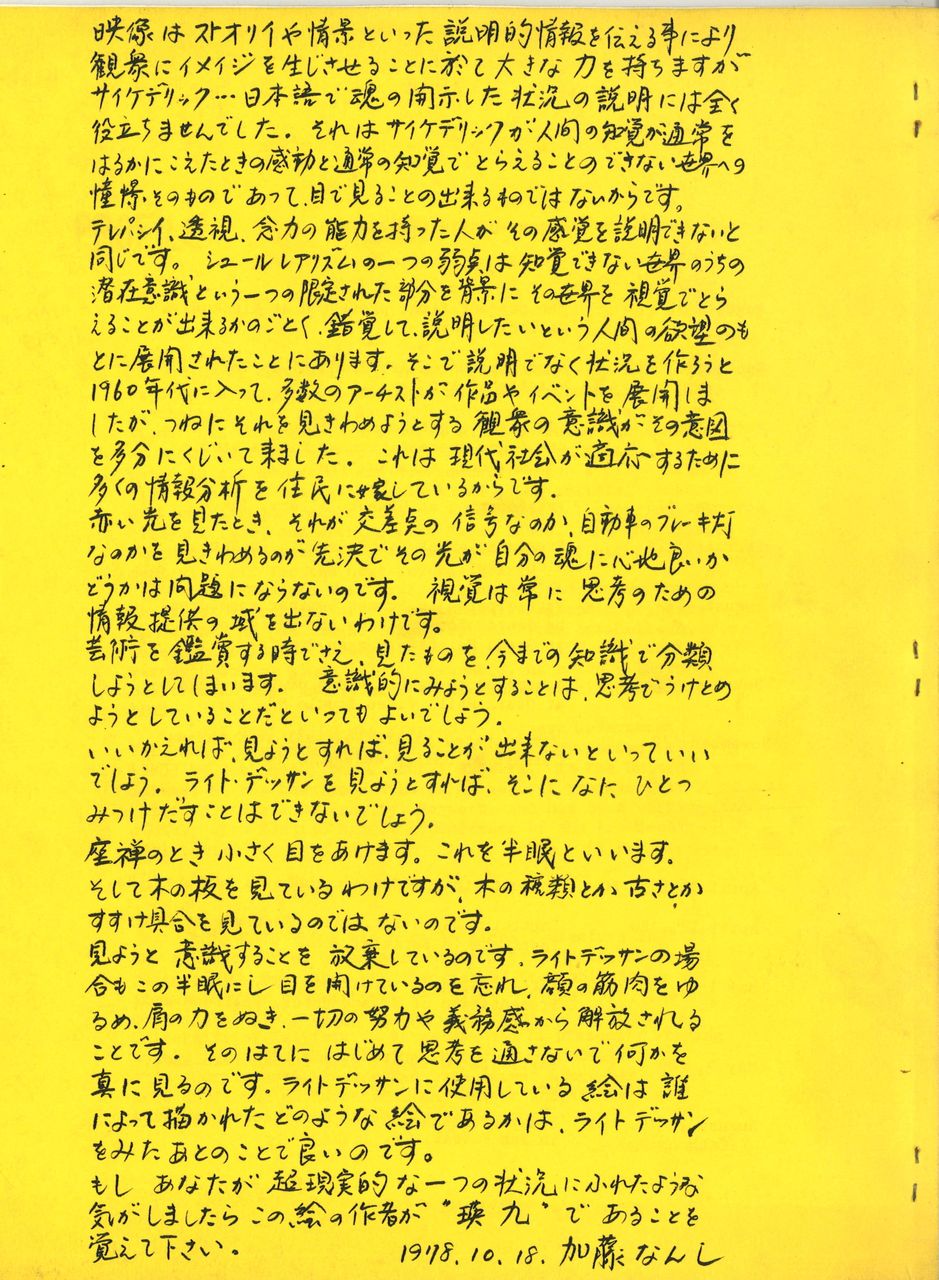 映像はストオリイや情景といった説明的情報を伝える事により
観衆にイメイジを生じさせることに於て大きな力を持ちますが
サイケデリック…日本語で魂の開示した状況の説明には全く
役立ちませんでした。それはサイケデリックが人間の知覚が通常を
はるかにこえたときの感動と通常の知覚でとらえることのできない世界への
憧憬そのものであって、目で見ることの出来るものではないからです。
テレパシイ、透視、念力の能力を持った人がその感覚を説明できないと
同じです。シュールレアリズムの一つの弱点は知覚できない世界のうちの
潜在意識という一つの限定された部分を背景にその世界を視覚でとら
えることが出来るかのごとく、錯覚して、説明したいという人間の欲望のも
とに展開されたことにあります。そこで説明でなく状況を作ろうと
1960年代に入って、多数のアーチストが作品やイベントを展開しま
したが、つねにそれを見きわめようとする観衆の意識がその意図
を多分にくじいて来ました。これは現代社会が適応するために
多くの情報分析を住民に嫁しているからです。
赤い光を見たとき、それが交差点の信号なのか、自動車のブレーキ灯
なのかを見きわめるのが先決でその光が自分の魂に心地良いか
どうかは問題にならないのです。視覚は常に思考のための
情報提供の域を出ないわけです。
芸術を鑑賞する時でさえ、見たものを、今までの知識で分類
しようとしてしまいます。意識的にみようとすることは、思考でうけとめ
ようとしていることだといってもよいでしょう。
いいかえれば、見ようとすれば、見ることが出来ないといっていい
でしょう。ライト・デッサンを見ようとすれば、そこになに、ひとつ
みつけだすことはできないでしょう。
座禅のとき小さく目をあけます。これを半眠といいます。
そして木の板を見ているわけですが、木の種類とか古さとか
すすけ具合を見ているのではないのです。
見ようと意識することを放棄しているのです。ライトデッサンの場
合もこの半眠にし目を開けているのを忘れ、顔の筋肉をゆ
るめ、肩の力をぬき、一切の努力や義務感から解放される
ことです。そのはてにはじめて思考を通さないで何かを
真に見るのです。ライトデッサンに使用している絵は誰
によって描かれたどのような絵であるかは、ライトデッサン
をみたあとのことで良いのです。
もしあなたが超現実的な一つの状況にふれたような
気がしましたらこの絵の作者が“瑛九”であることを
覚えて下さい。 1978.10.18. 加藤なんし